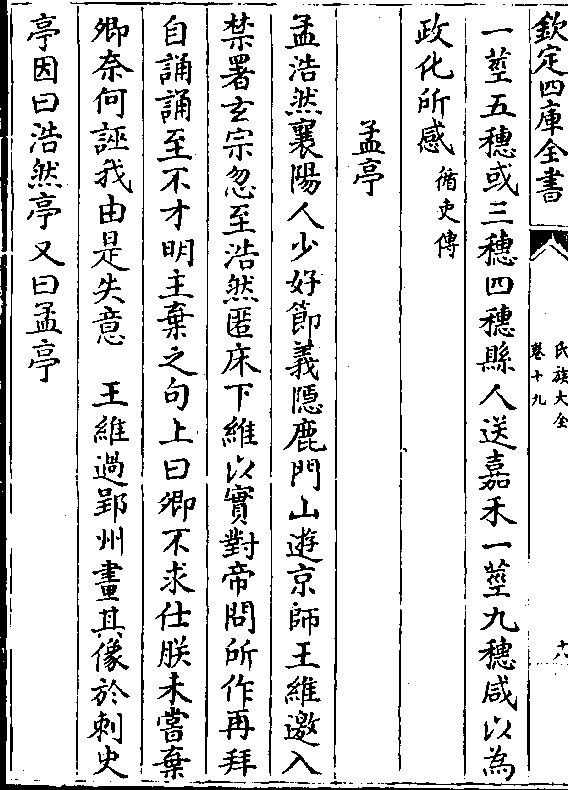 欽定四庫全書
氏族大全
卷十九
十八
一莖五穗或三穗四穗縣人送嘉禾一莖九穗咸以為
政化所感 循吏傳
孟亭
孟浩然襄陽人少好節義隱鹿門山遊京師王維邀入
禁署玄宗忽至浩然匿床下維以實對帝問所作再拜
自誦誦至不才明主棄之句上曰卿不求仕朕未嘗棄
卿奈何誣我由是失意 王維過郢州畫其像於刺史
亭因曰浩然亭又曰孟亭